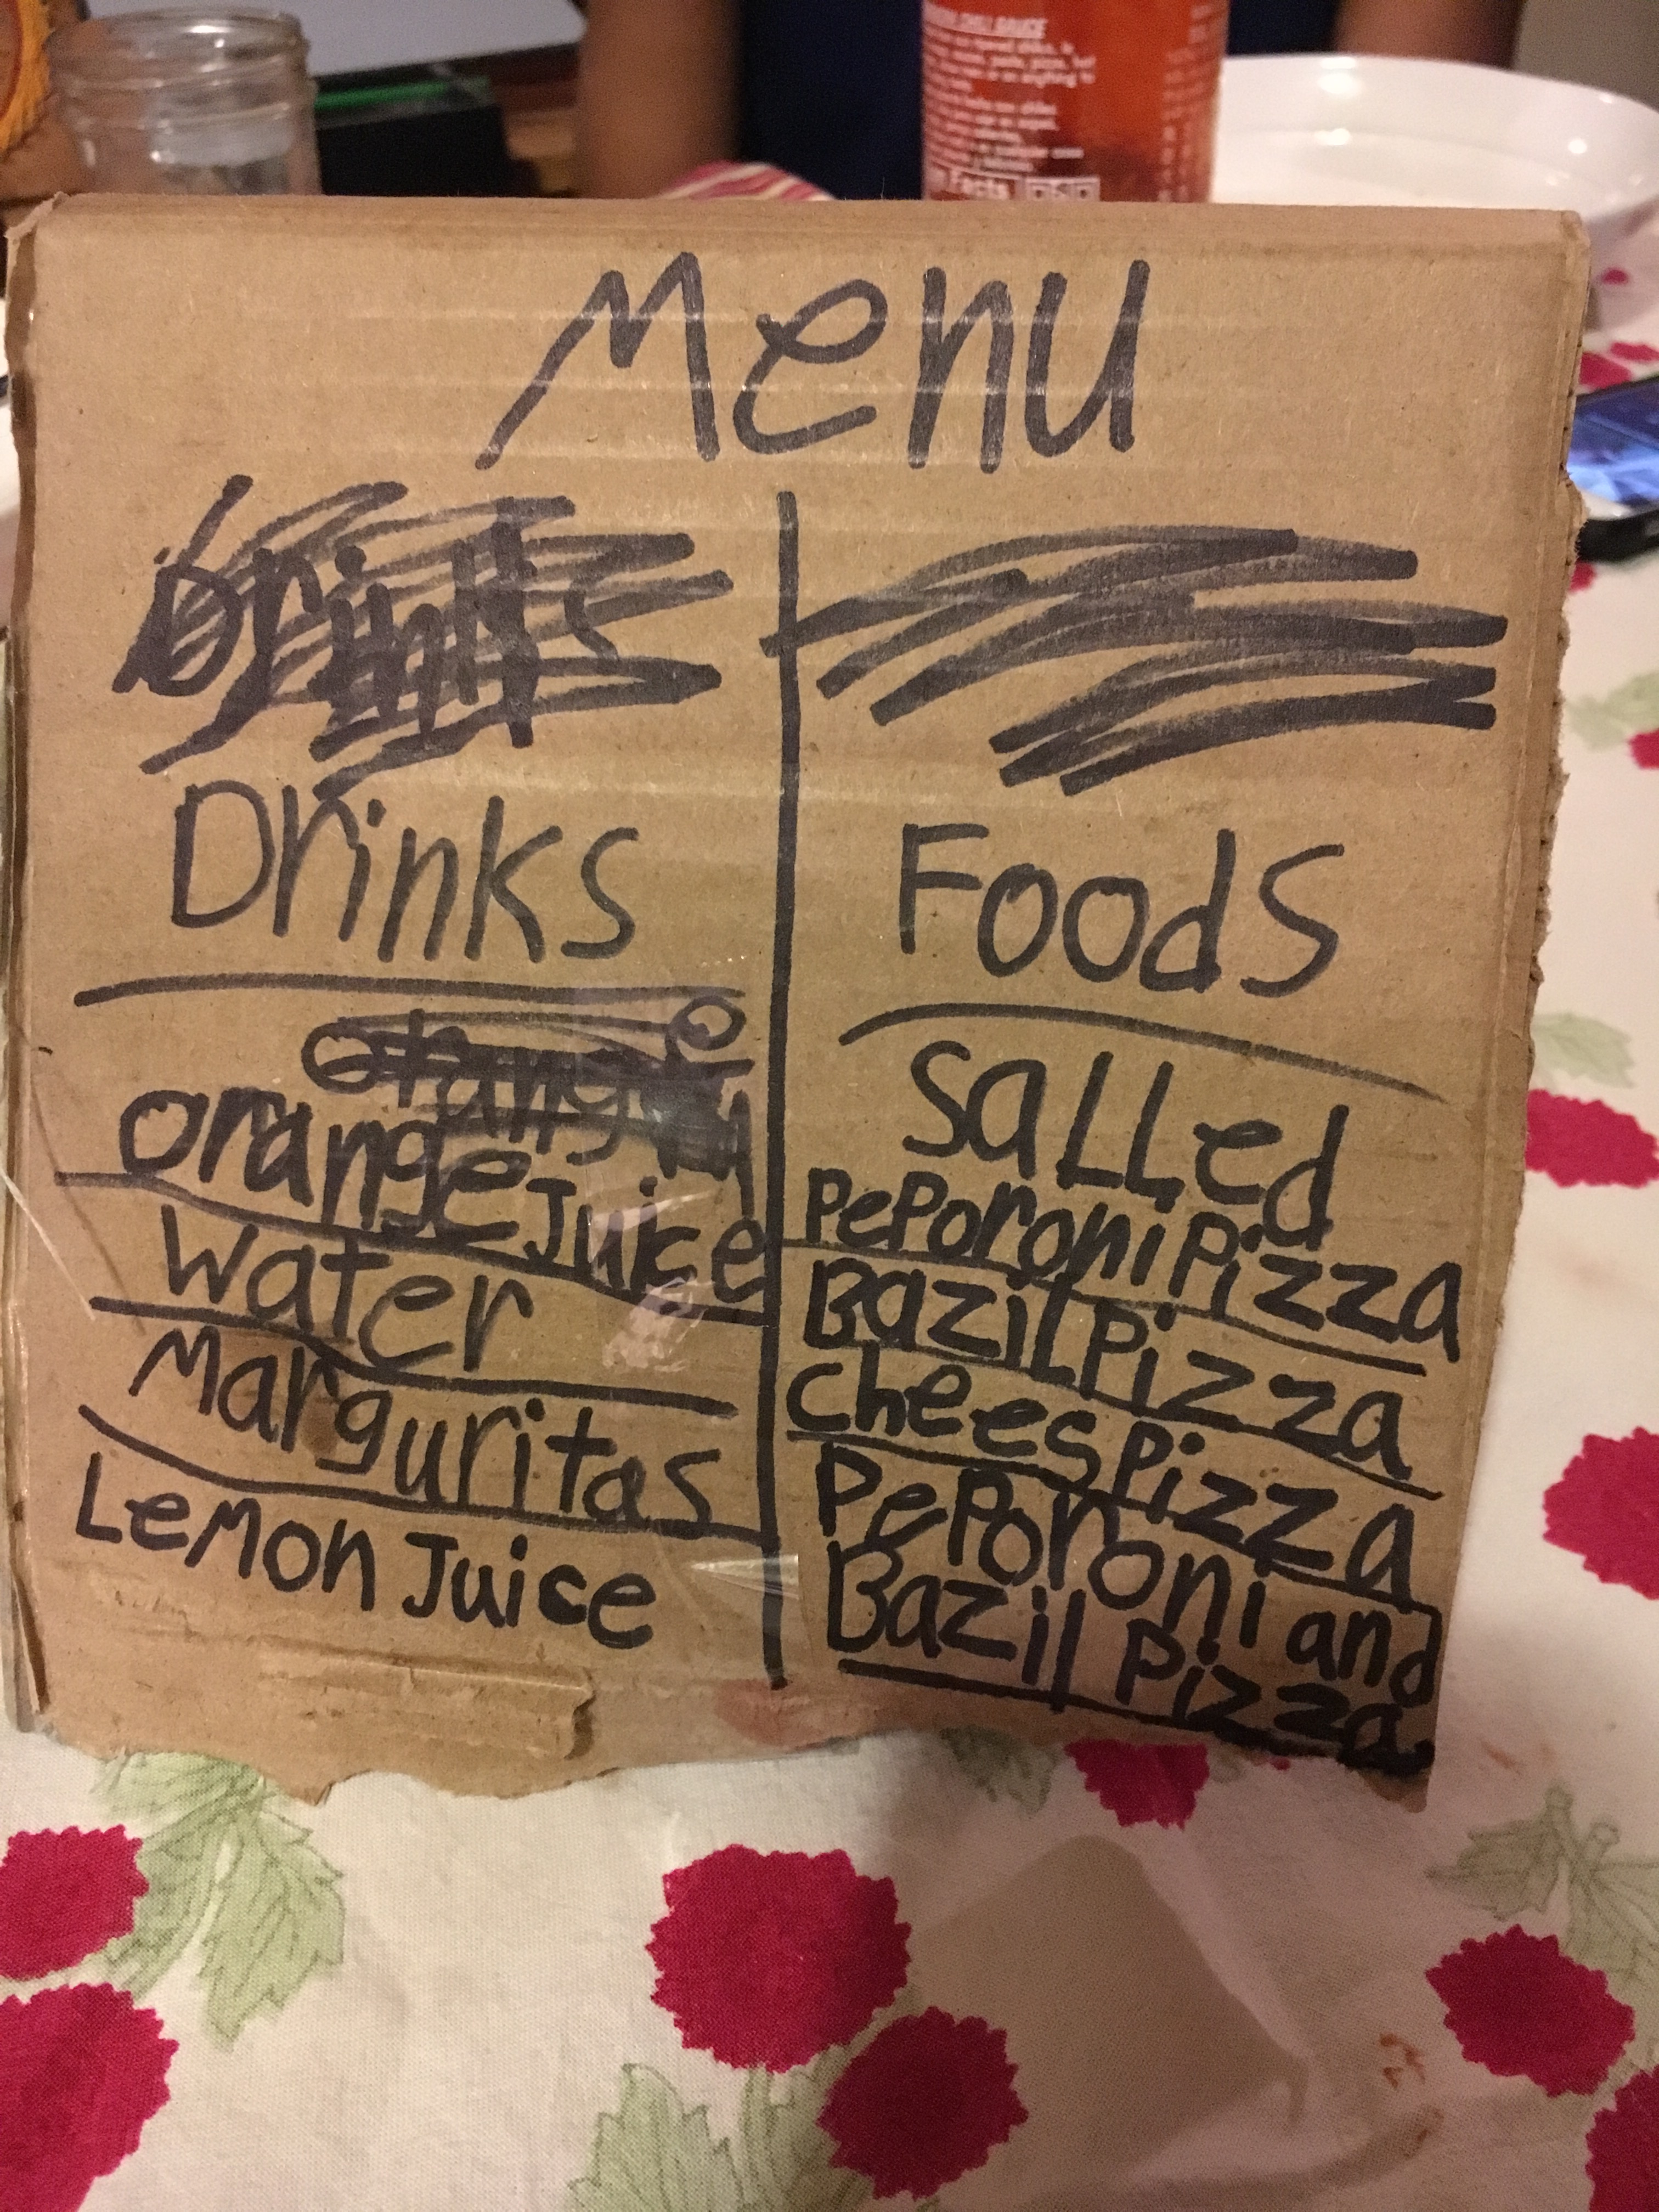 Menu
Drinks
Drinks
orange
orange Juice
Water
Marguritas
Lemon Juice
Foods
Salled
Peporoni Pizza
Bazil Pizza
Chees Pizza
Peporoni and
Bazil Pizza